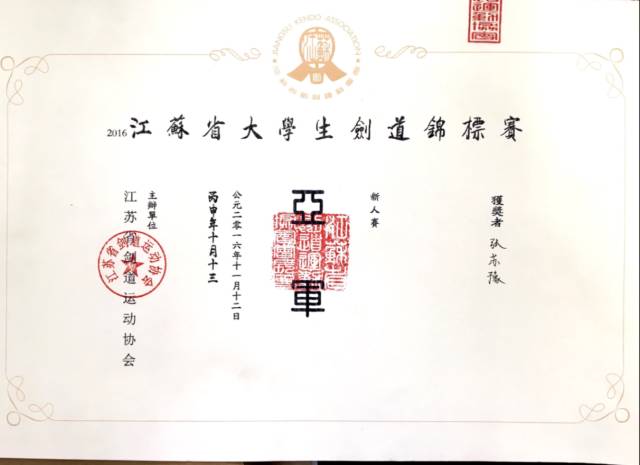 JIANGSU KENDO ASSOCIATION
2016江蘇省大學生劍道錦標賽
獲獎者 张亦豫
新人賽
亞軍
公元二零一六年十一月十二日
丙申年十月十三
主辦單位
江苏省剑道运动协会
江苏省剑道运动协会